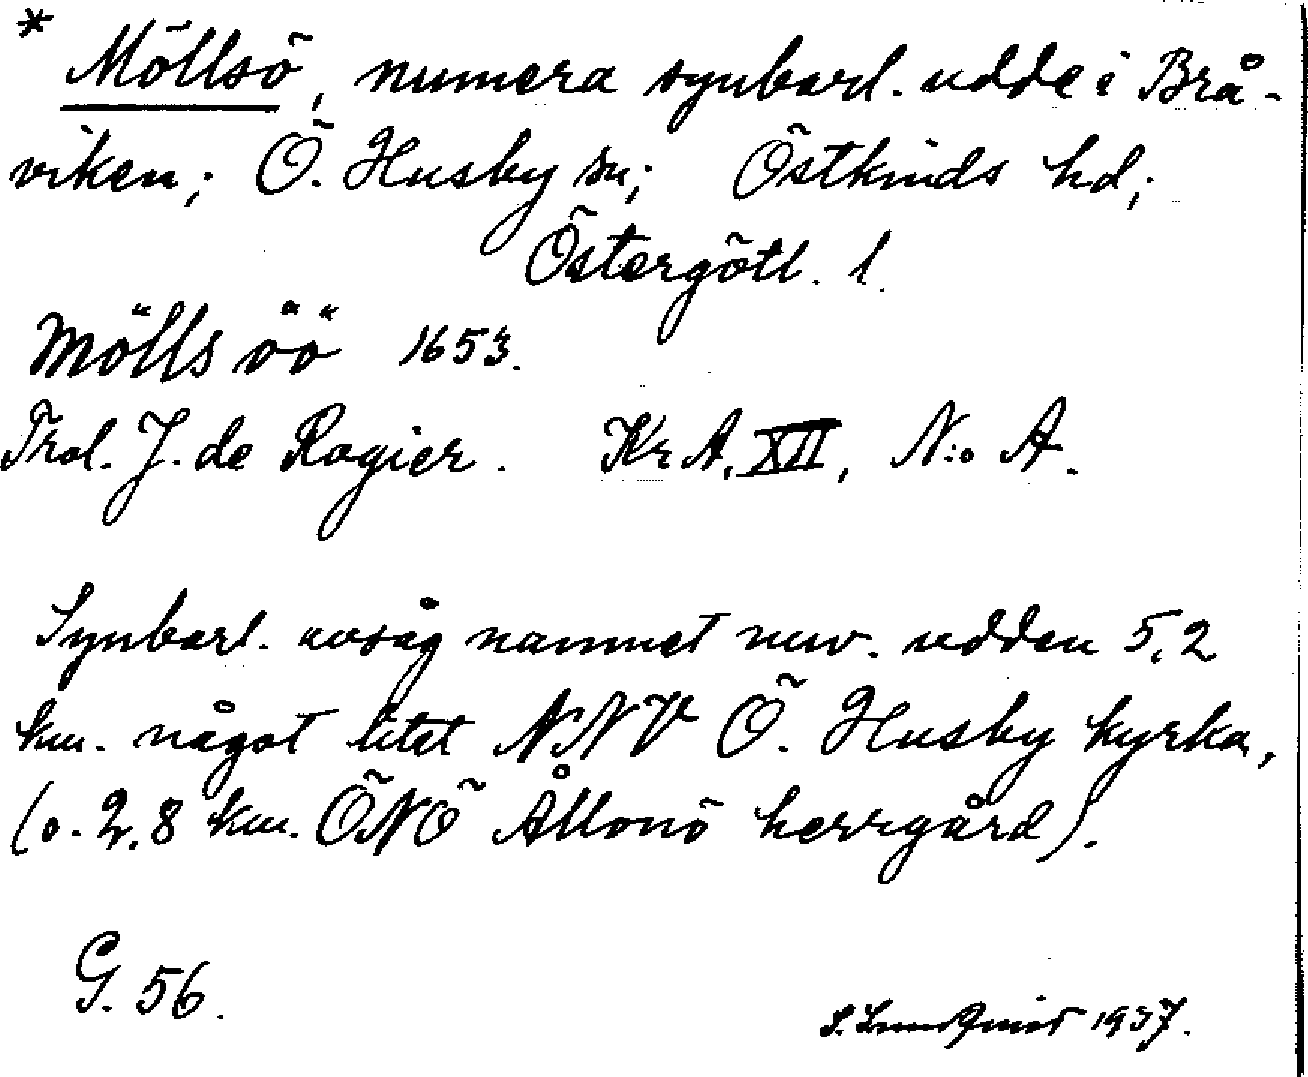 * Möllsö, numera synbarl. udde i Brå-
viken; Ö. Husby sn; Östkinds hd;
Östergötl. l.
Mölls öö 1653.
Trol. J. de Rogier. Kr A, XII, N:o A.
Synbarl. avsåg namnet nuv. udden 5,2
km. något litet NNV Ö. Husby kyrka,
(o. 2,8 km. ÖNÖ Ållonö herrgård).
G. 56.
S. Lundquist 1937.